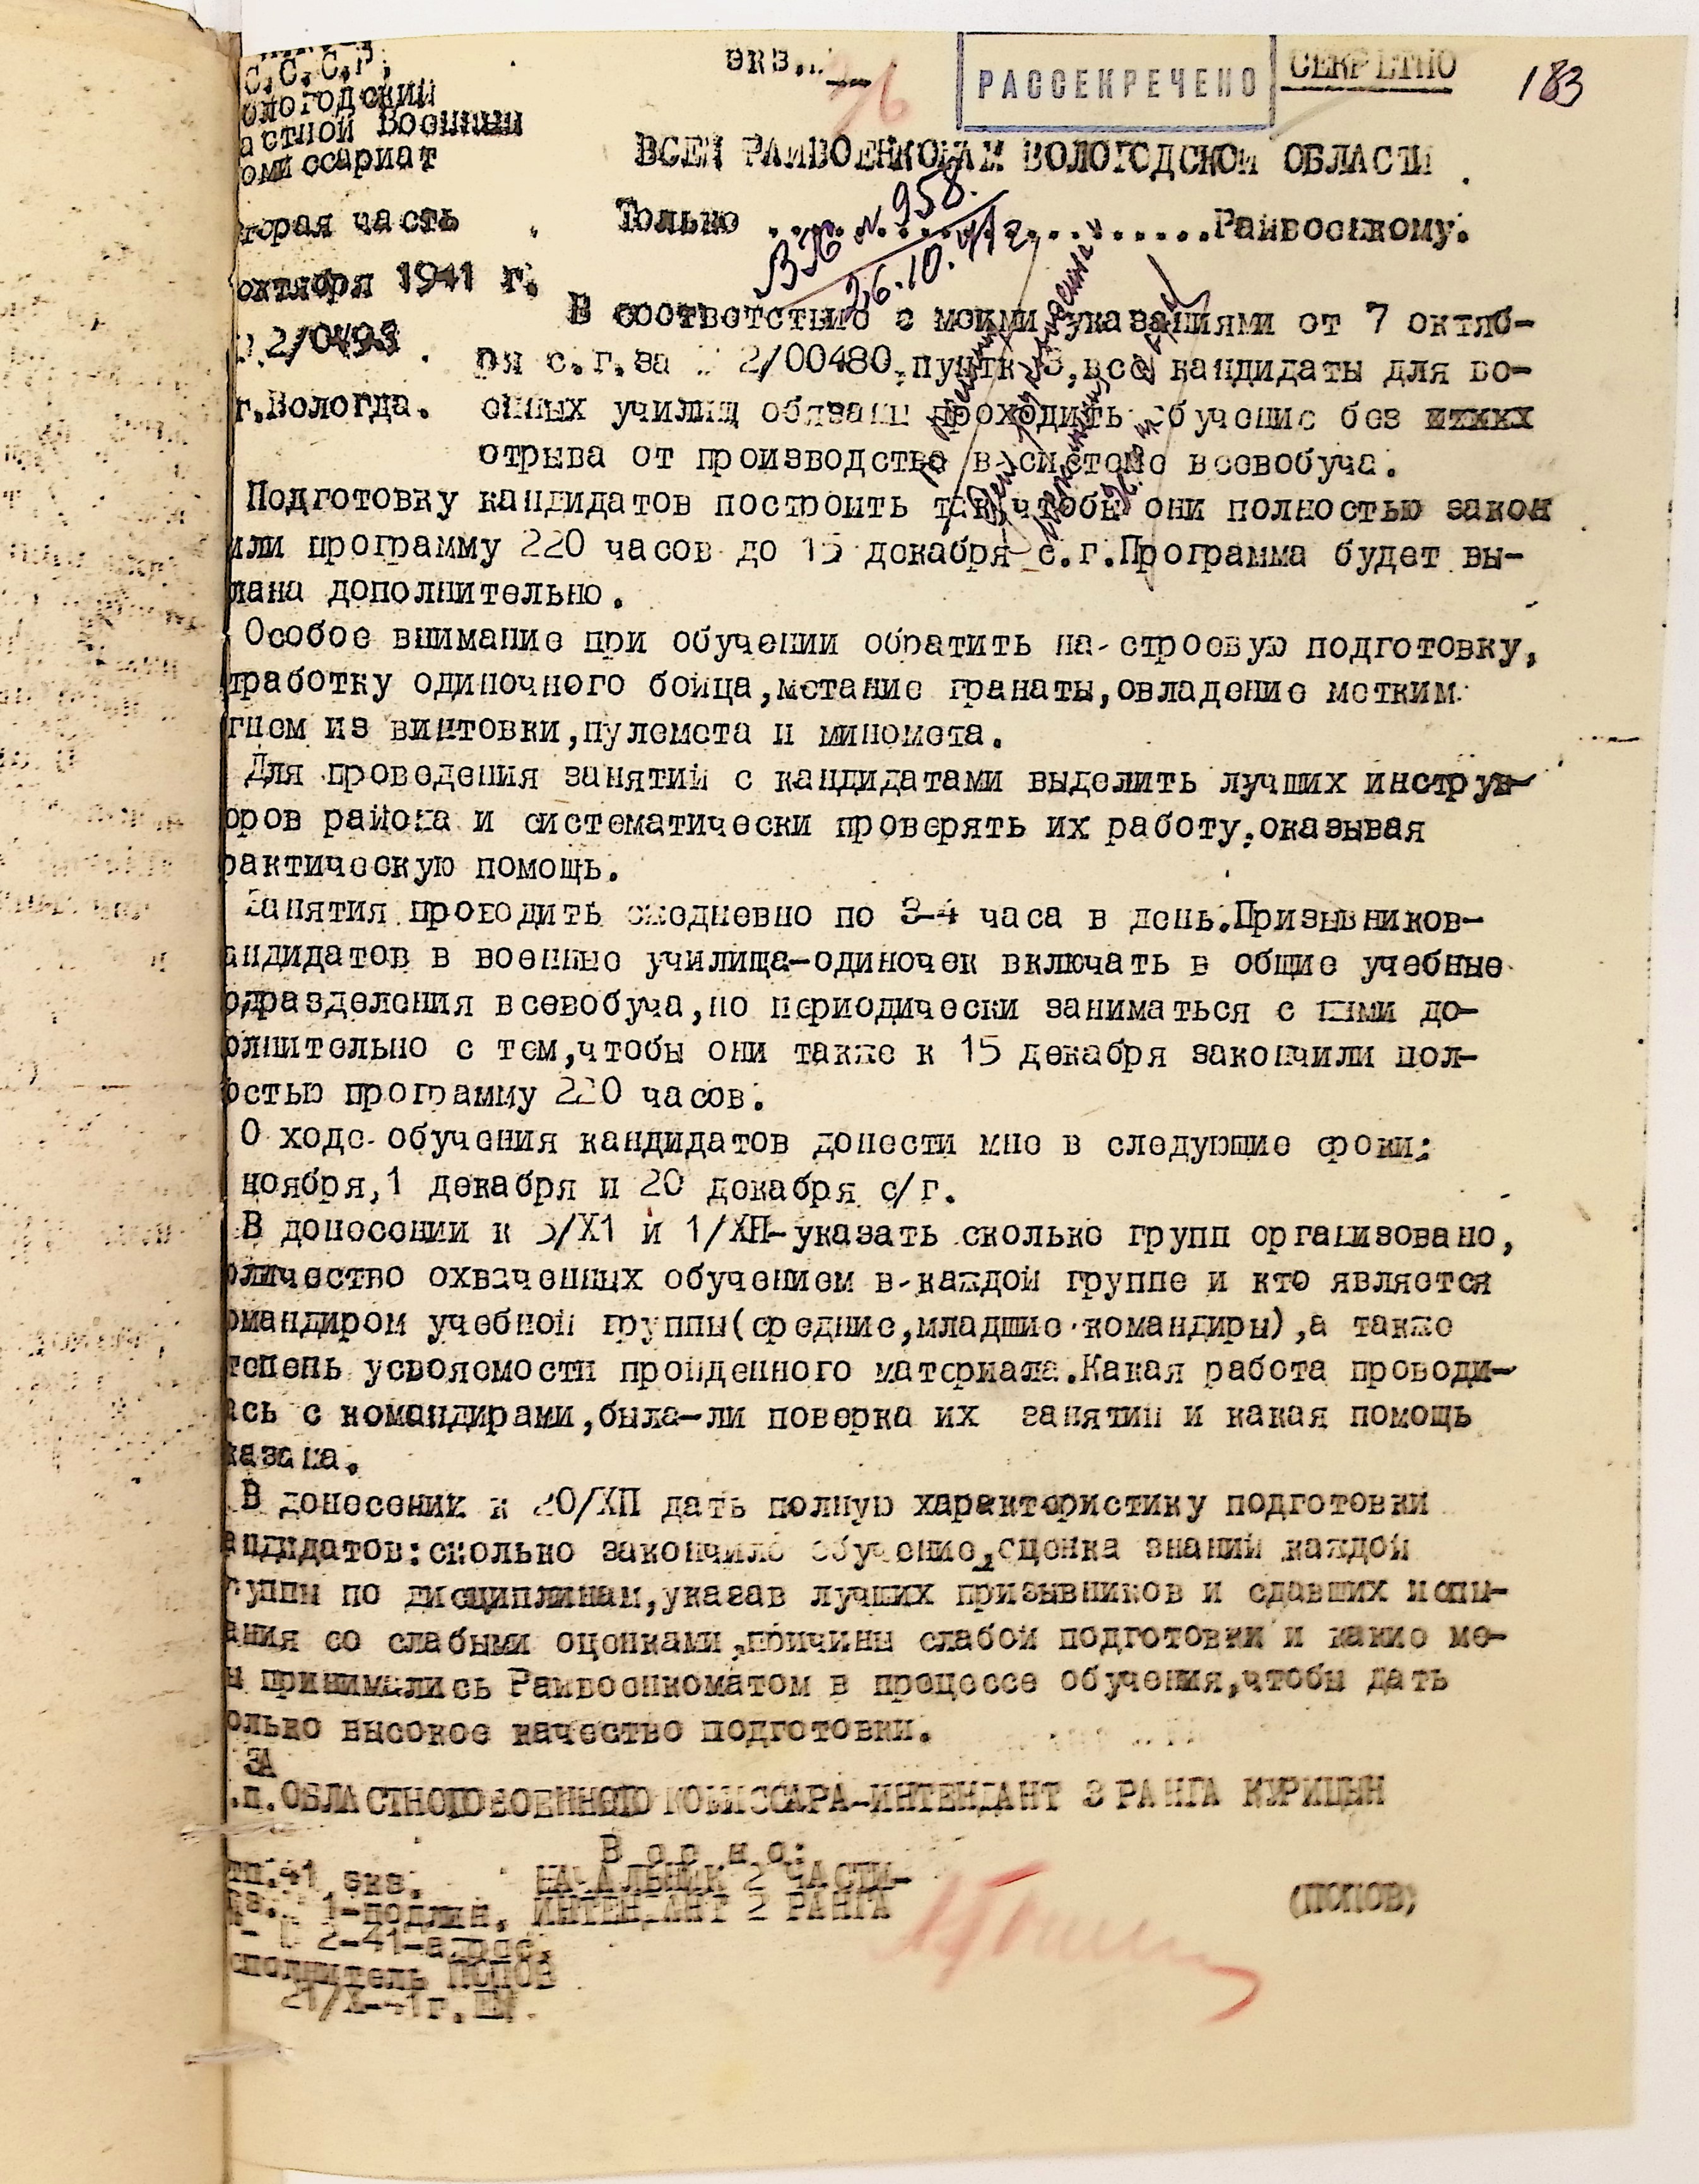 С.С.С.Р.
ологодский
астной Военный
омиссариат
экз.
26
РАССЕКРЕЧЕНО
СЕКРЕТНО
183
ВСЕМ РАЙВОЕНКОМАМ ВОЛОГОДСКОЙ ОБЛАСТИ
торая часть
Только ..................Райвоенкому.
Вх. N 958.
26.10.41г.
октября 1941 г.
2/0493
г.Вологда.
В соответствие с моими указаниями от 7 октяб-
ря с.г.за 2/00480,пункт 3,все кандидаты для во-
енных училищ обязаны проходить обучение без
отрыва от производства в системе всевобуча.
Подготовку кандидатов построить так,чтобы они полностью закон
или программу 220 часов до 15 декабря с.г.Программа будет вы-
лана дополнительно.
Особое внимание при обучении обратить на строевую подготовку,
тработку одиночного бойца,метание гранаты,овладение метким
гнем из винтовки,пулемета и миномета.
Для проведения занятий с кандидатами выделить лучших инструк-
оров района и систематически проверять их работу,оказывая
рактическую помощь.
Занятия проводить ежедневно по 3-4 часа в день.Призывников-
андидатов в военные училища-одиночек включать в общие учебные
одразделения всевобуча,но периодически заниматься с ними до-
олнительно с тем,чтобы они также к 15 декабря закончили пол-
остью программу 220 часов.
О ходе обучения кандидатов донести мне в следующие сроки:
ноября,1 декабря и 20 декабря с/г.
В донесении к 5/Х1 и 1/ХП-указать сколько групп организовано,
оличество охваченных обучением в каждой группе и кто является
омандиром учебной группы(средние,младшие командиры),а также
тепень усвояемости пройденного материала.Какая работа проводи-
ась с командирами,была-ли поверка их занятий и какая помощь
казана.
В донесении к 20/ХП дать полную характеристику подготовки
андидатов:сколько закончило обучение,оценка знаний каждой
руппы по дисциплинам,указав лучших призывников и сдавших испы-
ания со слабыми оценками,причины слабой подготовки и какие ме-
ы принимались Райвоенкоматом в процессе обучения,чтобы дать
олько высокое качество подготовки.
ЗА
.п.ОБЛАСТНОГО ВОЕННОГО КОМИССАРА-ИНТЕНДАНТ 3 РАНГА КУРИЦЫН
В е р н о:
НАЧАЛЬНИК 2 ЧАСТИ-
ИНТЕНДАНТ 2 РАНГА (ПОПОВ)
тп.41 экз.
1-подлин.
2-41-адрес.
сполнитель ПОПОВ
21/Х-41г.